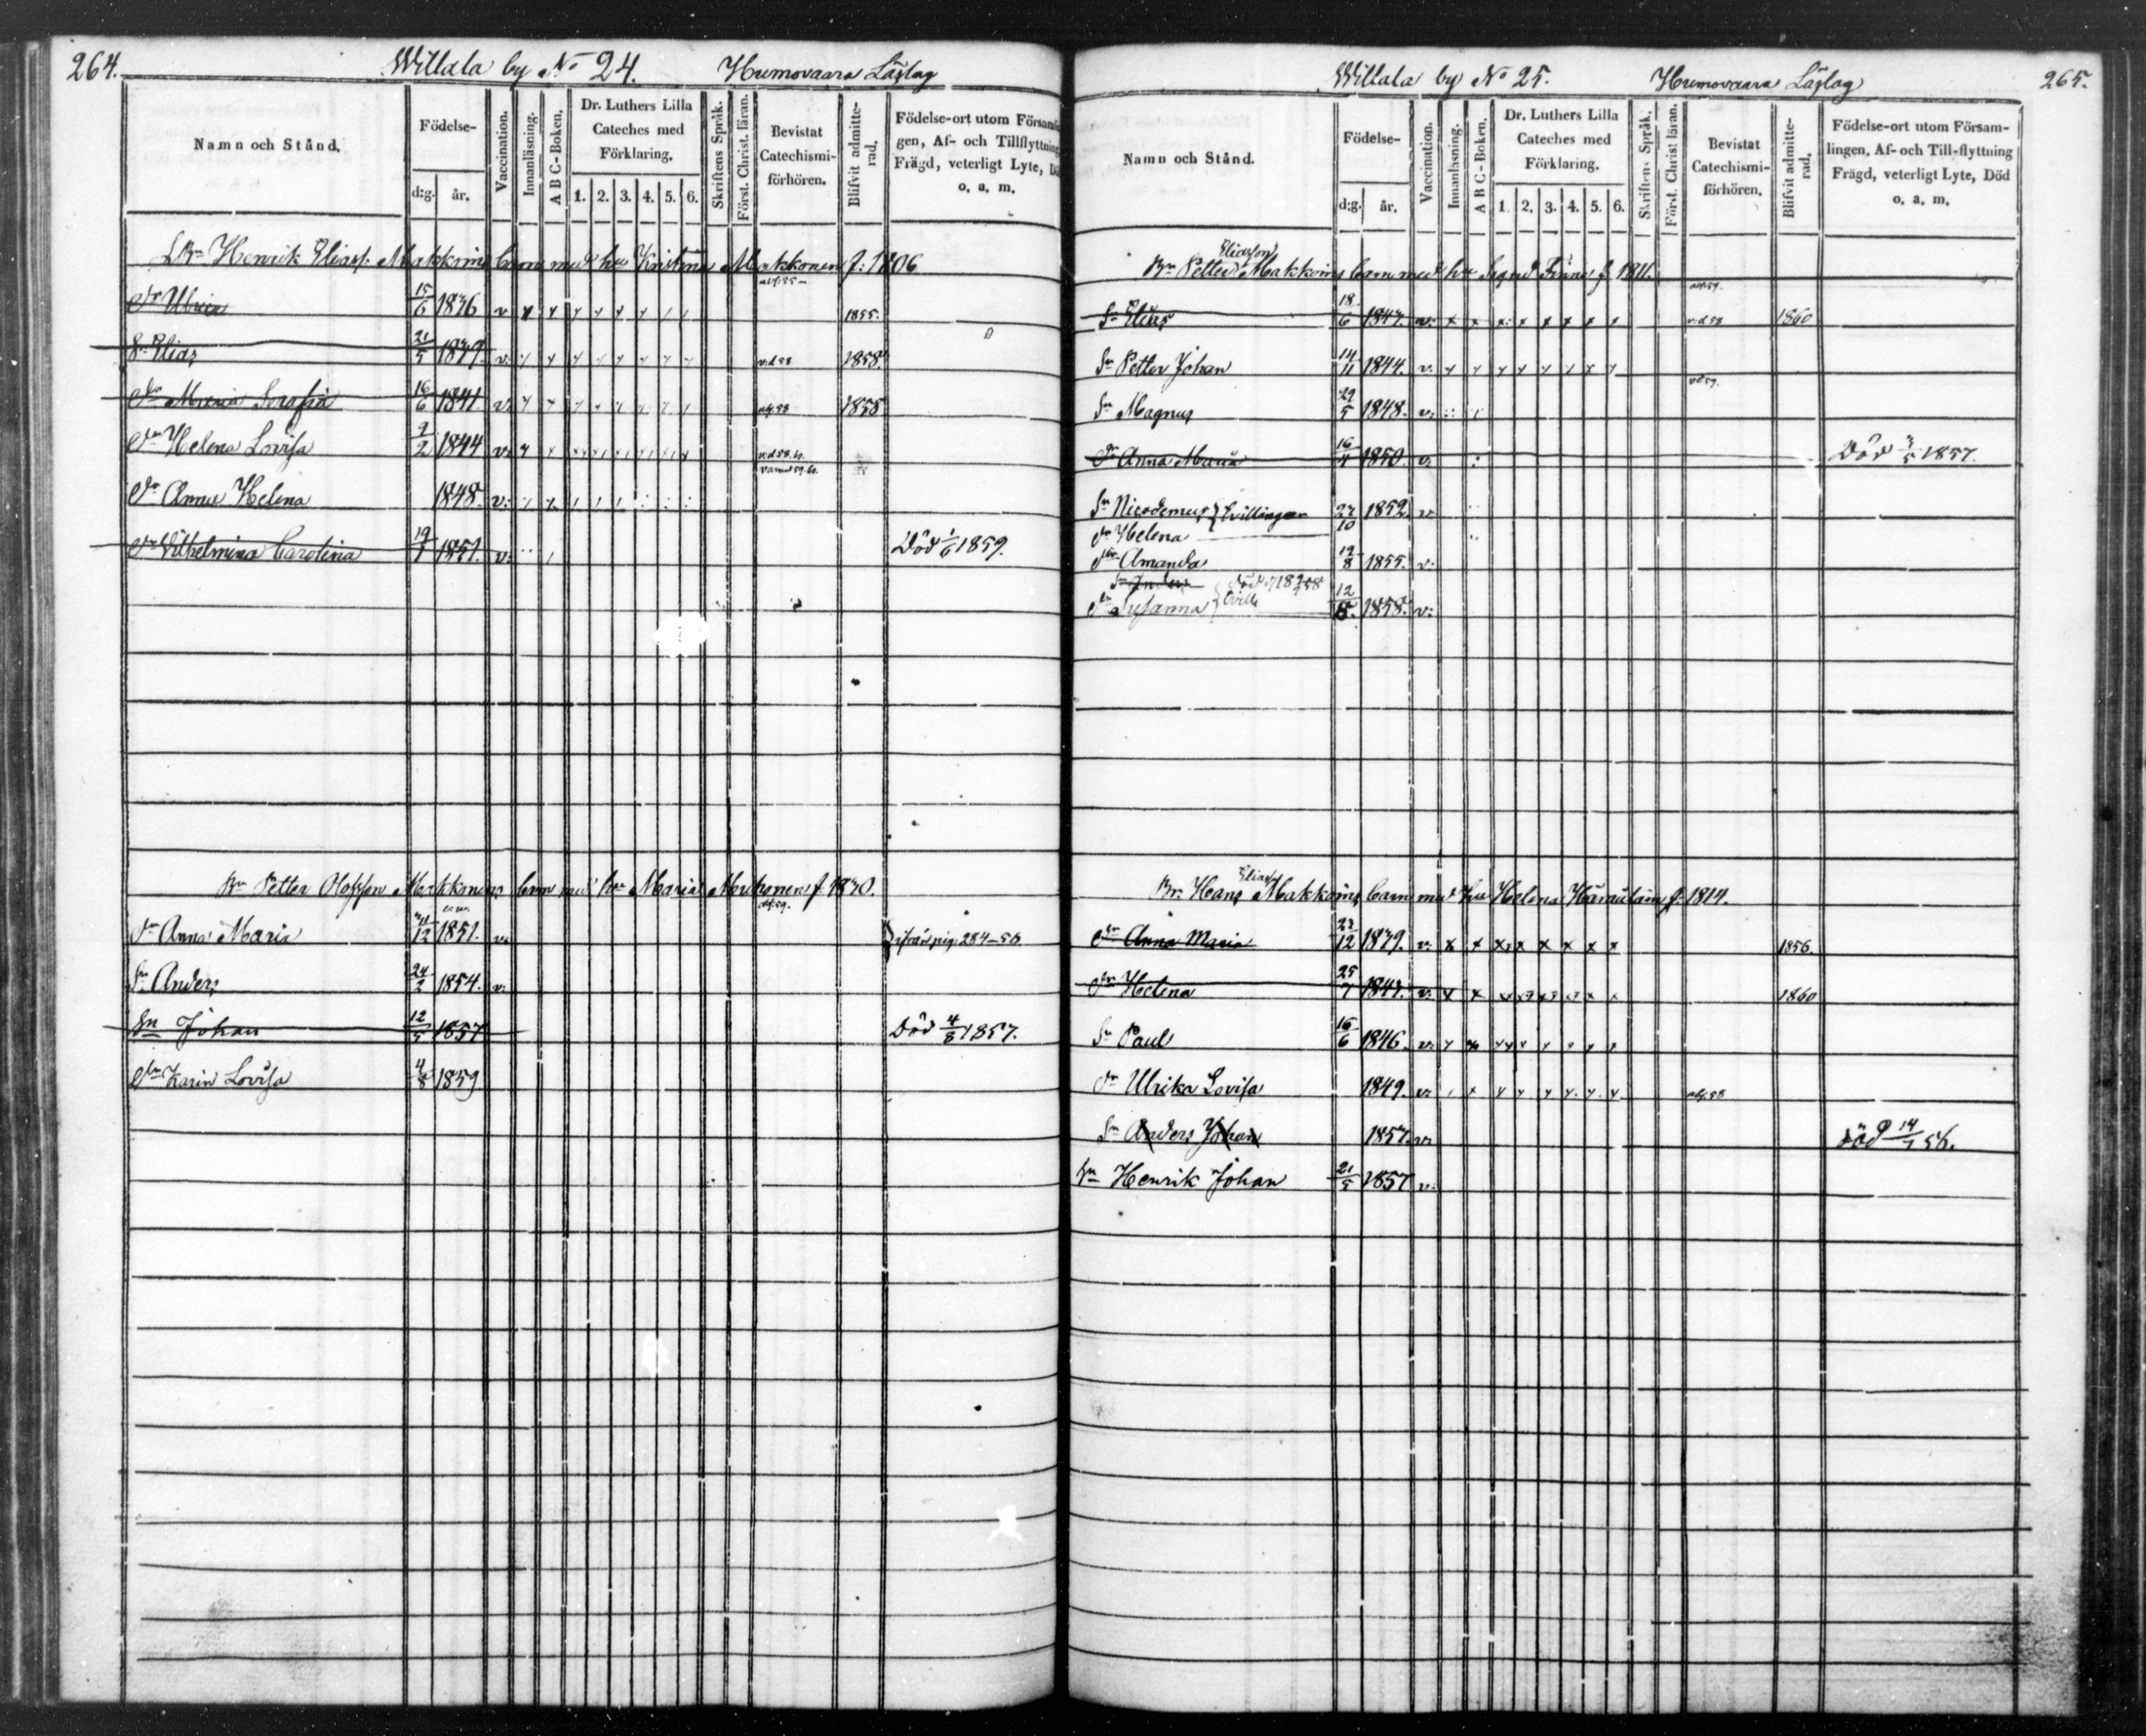 264.
Willala by No 24. Humovaara Läslag
Namn och Stånd.
Födelse-
d:g. år.
Vaccination.
Innanläsning.
A B C-Boken.
Dr. Luthers Lilla
Cateches med
Förklaring.
1. 2. 3. 4. 5. 6.
Skriftens Språk.
Först. Christ. läran.
Bevistat
Catechismi-
förhören.
Blifvit admitte-
rad.
Födelse-ort utom Försam
gen, Af- och Tillflyttning
Frägd, veterligt Lyte, Dö
o. a. m.
Henrik Eliass: Makkoins barn med hu Kristina Makkonen f: 1806
Dr Ulrica 15/6 1836 v 1855.
Sn Elias 21/5 1839. v: v.d 58 1858.
Dr Maria Serafia 16/6 1841. v: 1858
Dr Helena Lovisa 9/2 1844 v: v:d 58. 60.
Dr Anna Helena 1848. v:
Dr Wilhelmina Carolina 19/1 1851. v: Död 1/6 1859.
Bn Petter Olofsson Makkonens barn med hu Maria f. 1830.
Dr Anna Maria 1851. v: ifrån pig. 284-56.
Sn Anders 24/2 1854. v:
Sn Johan 12/5 1857 Död 4/8 1857.
Dr Karin Lovisa 4/8 1859
Willala by No 25. Humovaara Läslag
265.
Namn och Stånd.
Födelse-
d:g. år.
Vaccination.
Innanläsning.
A B C-Boken.
Dr. Luthers Lilla
Cateches med
Förklaring.
1. 2. 3. 4. 5. 6.
Skriftens Språk.
Först. Christ läran.
Bevistat
Catechismi-
förhören.
Blifvit admitte-
rad.
Födelse-ort utom Försam-
lingen, Af- och Till-flyttning
Frägd, veterligt Lyte, Död
o. a. m.
Eliasson
Bn Petter Makkoins barn med hu f. 1811.
Sn Elias 18/6 v: v:d 58 1860
Sn Petter Johan 14/11 1844. v.
Sn Magnus 29/5 1848. v:
Dr Anna Maria 16/4 1850. v: Död 1857.
Sn Nicodemus } tvillingar 1852. v:
Dr Helena
Dr Amanda 19/8 1855. v:
Dr Susanna 12/ 1858. v:
Eliass
Bn Hans Makkoins barn med hu Helena f. 1814.
Dr Anna Maria 12 1839. v: 1856.
Dr Helena 25/7 v: 1860
Sn Paul 16/6 1846. v:
Dr Ulrika Lovisa 1849. v:
Sn Anders Johan v: död 56.
Sn Henrik Johan 21/5 1857 v: